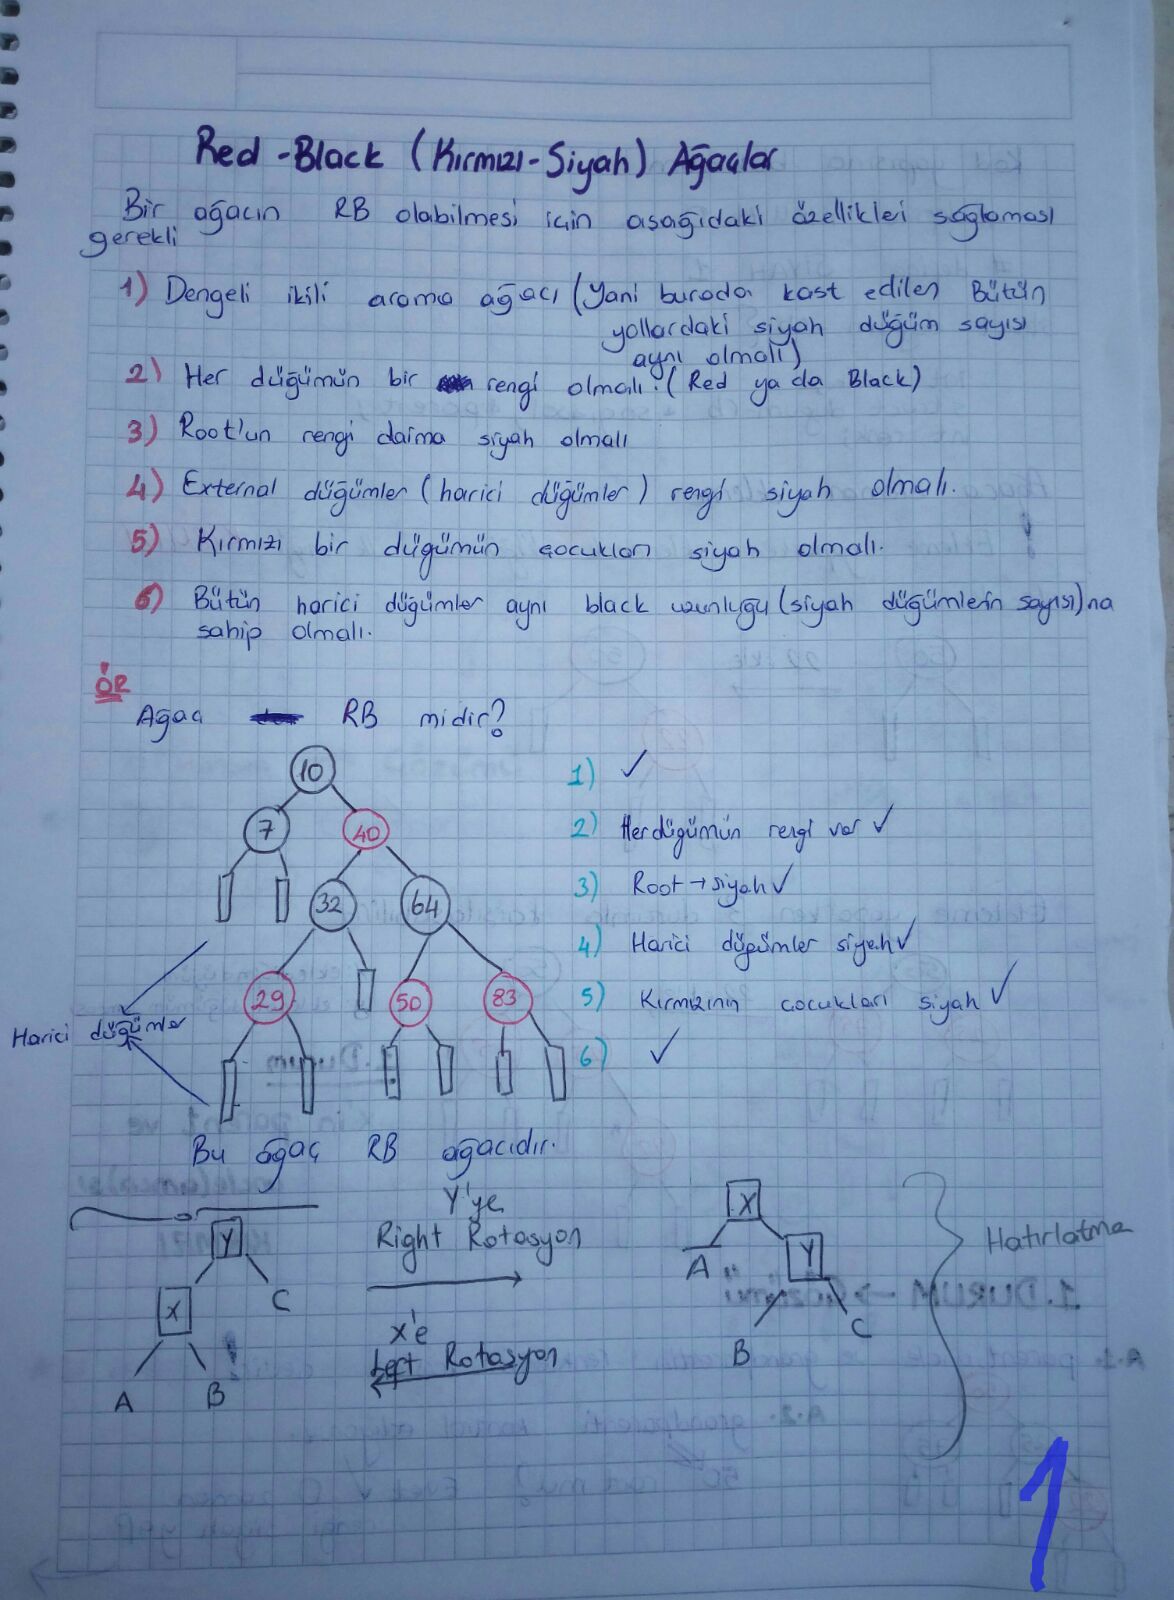 Red-Black (Kırmızı-Siyah) Ağaçlar
Bir ağacın RB olabilmesi için aşağıdaki özellikleri sağlaması
gerekli
1) Dengeli ikili arama ağacı (Yani burada kast edilen Bütün
yollardaki siyah düğüm sayısı
aynı olmalı)
2) Her düğümün bir rengi olmalı. (Red ya da Black)
3) Root'un rengi daima siyah olmalı
4) External düğümler (harici düğümler) rengi siyah olmalı.
5) Kırmızı bir düğümün çocukları siyah olmalı.
6) Bütün harici düğümler aynı black uzunluğu (siyah düğümlerin sayısı)na
sahip olmalı.
ÖR
Ağaç RB midir?
10
7 40
32 64
29 50 83
Harici düğümler
1) ✓
2) Her düğümün rengi var ✓
3) Root → siyah ✓
4) Harici düğümler siyah ✓
5) Kırmızının çocukları siyah ✓
6) ✓
Bu ağaç RB ağacıdır.
Y
X C
A B
Y'ye
Right Rotasyon
X'e
Left Rotasyon
X
A Y
B C
Hatırlatma
1